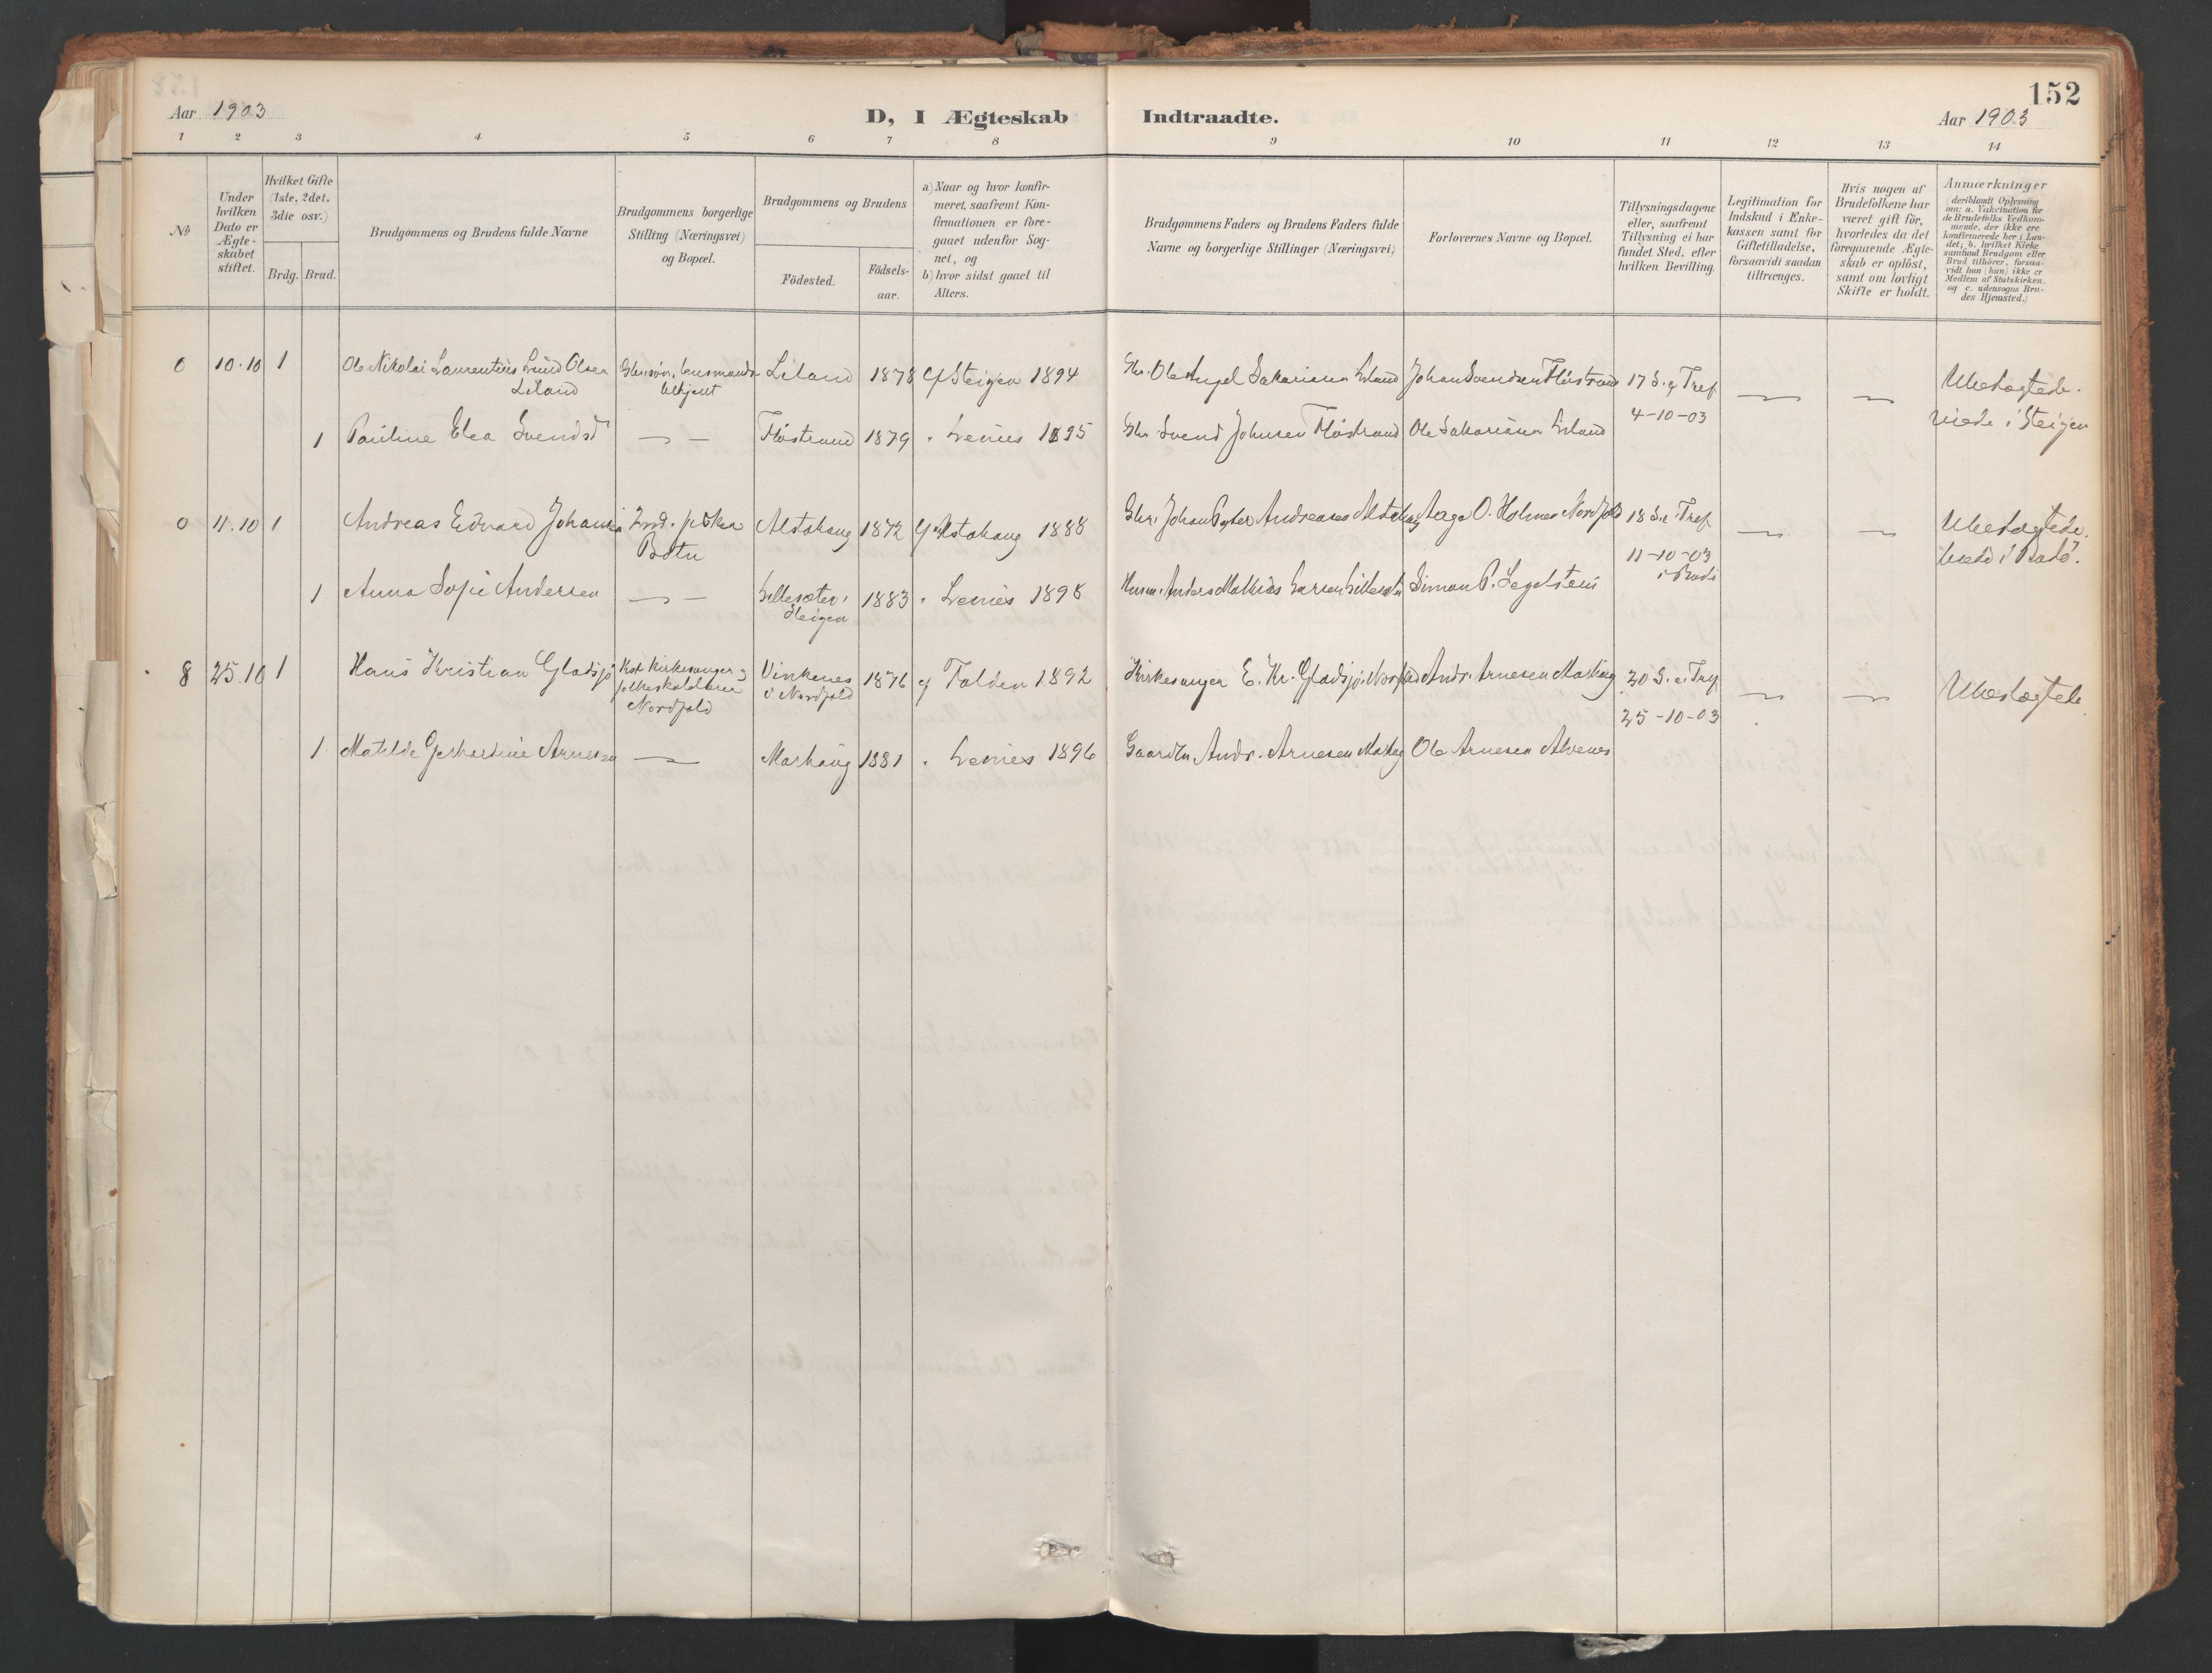 152
Aar 1903
D, I Ægteskab Indtraadte.
Aar 1903
1 2 3 4 5 6 7 8 9 10 11 12 13 14
№
Under hvilken Dato er Ægteskabet stiftet.
Hvilket Gifte (1ste, 2det, 3die osv.)
Brdg. Brud.
Brudgommens og Brudens fulde Navne
Brudgommens borgerlige Stilling (Næringsvei) og Bopæl.
Brudgommens og Brudens
Födested.
Födselsaar.
a) Naar og hvor konfirmeret, saafremt Konfirmationen er foregaaet udenfor Sognet, og
b) hvor sidst gaaet til Alters.
Brudgommens Faders og Brudens Faders fulde Navne og borgerlige Stillinger (Næringsvei)
Forlovernes Navne og Bopæl.
Tillysningsdagene eller, saafremt Tillysning ei har fundet Sted, efter hvilken Bevilling.
Legitimation for Indskud i Enkekassen samt for Giftetilladelse, forsaavidt saadan tiltrænges.
Hvis nogen af Brudefolkene har været gift för, hvorledes da det foregaaende Ægteskab er oplöst, samt om lovligt Skifte er holdt.
Anmærkninger (deriblandt Oplysning om: a. Vakcination for de Brudefolks Vedkommende, der ikke ere konfirmerede her i Landet; b. hvilket Kirkesamfund Brudgom eller Brud tilhörer, forsaavidt han (hun) ikke er Medlem af Statskirken. og c. udensogns Brudes Hjemsted.)
0 10.10 1 Ole Nikolai Laurentius Lund Olsen Liland
Liland 1878 Steigen 1894
Johan Svendsen Flöstrand 17 S. e Tref 4-10-03
Ubeslægtede. Viede i Steigen
1 Pauline Elea Svendsd
Flöstrand 1879 " Leines 1895
Svend Johnsen Flöstrand Ole Sakariasen Liland
0 11.10 1 Andreas Edvard Johans
Botn
Alstahaug 1872 Alstahaug 1888
Johan Peter Andreasen Aage O. Holmen Nordfold 18 S. e Tref 11-10-03 i Bodö
Ubeslægtede. Viede i Bodö.
1 Anna Sofie Andersen
Lillesæter i Steigen 1883 " Leines 1898
Anders Mathias Larsen Simon P. Segelsteen
8 25.10 1 Hans Kristian Gladsjö
Kst. kirkesanger og folkeskolelærer Nordfold
Vinkenes i Nordfold 1876 Folden 1892
Kirkesanger E. Kr. Gladsjö, Andr. Arnesen Marhaug 20 S. e. Tref 25-10-03
Ubeslægtede
1 Matilde Gerhardine Arnesen
Marhaug 1881 " Leines 1896
Gaardbr Andr. Arnesen Marhaug Ole Arnesen Alvenes